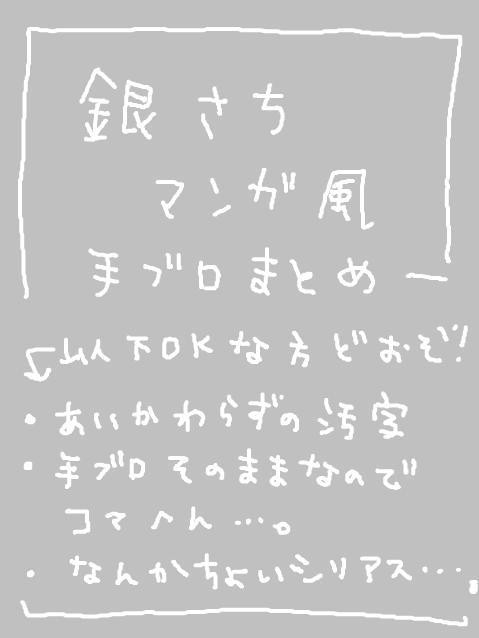 銀さち
マンガ風
手ブロまとめー
以下OKな方どおぞ!
・あいかわらずの汚字
・手ブロそのままなので
コマへん…。
・なんかちょいシリアス…。